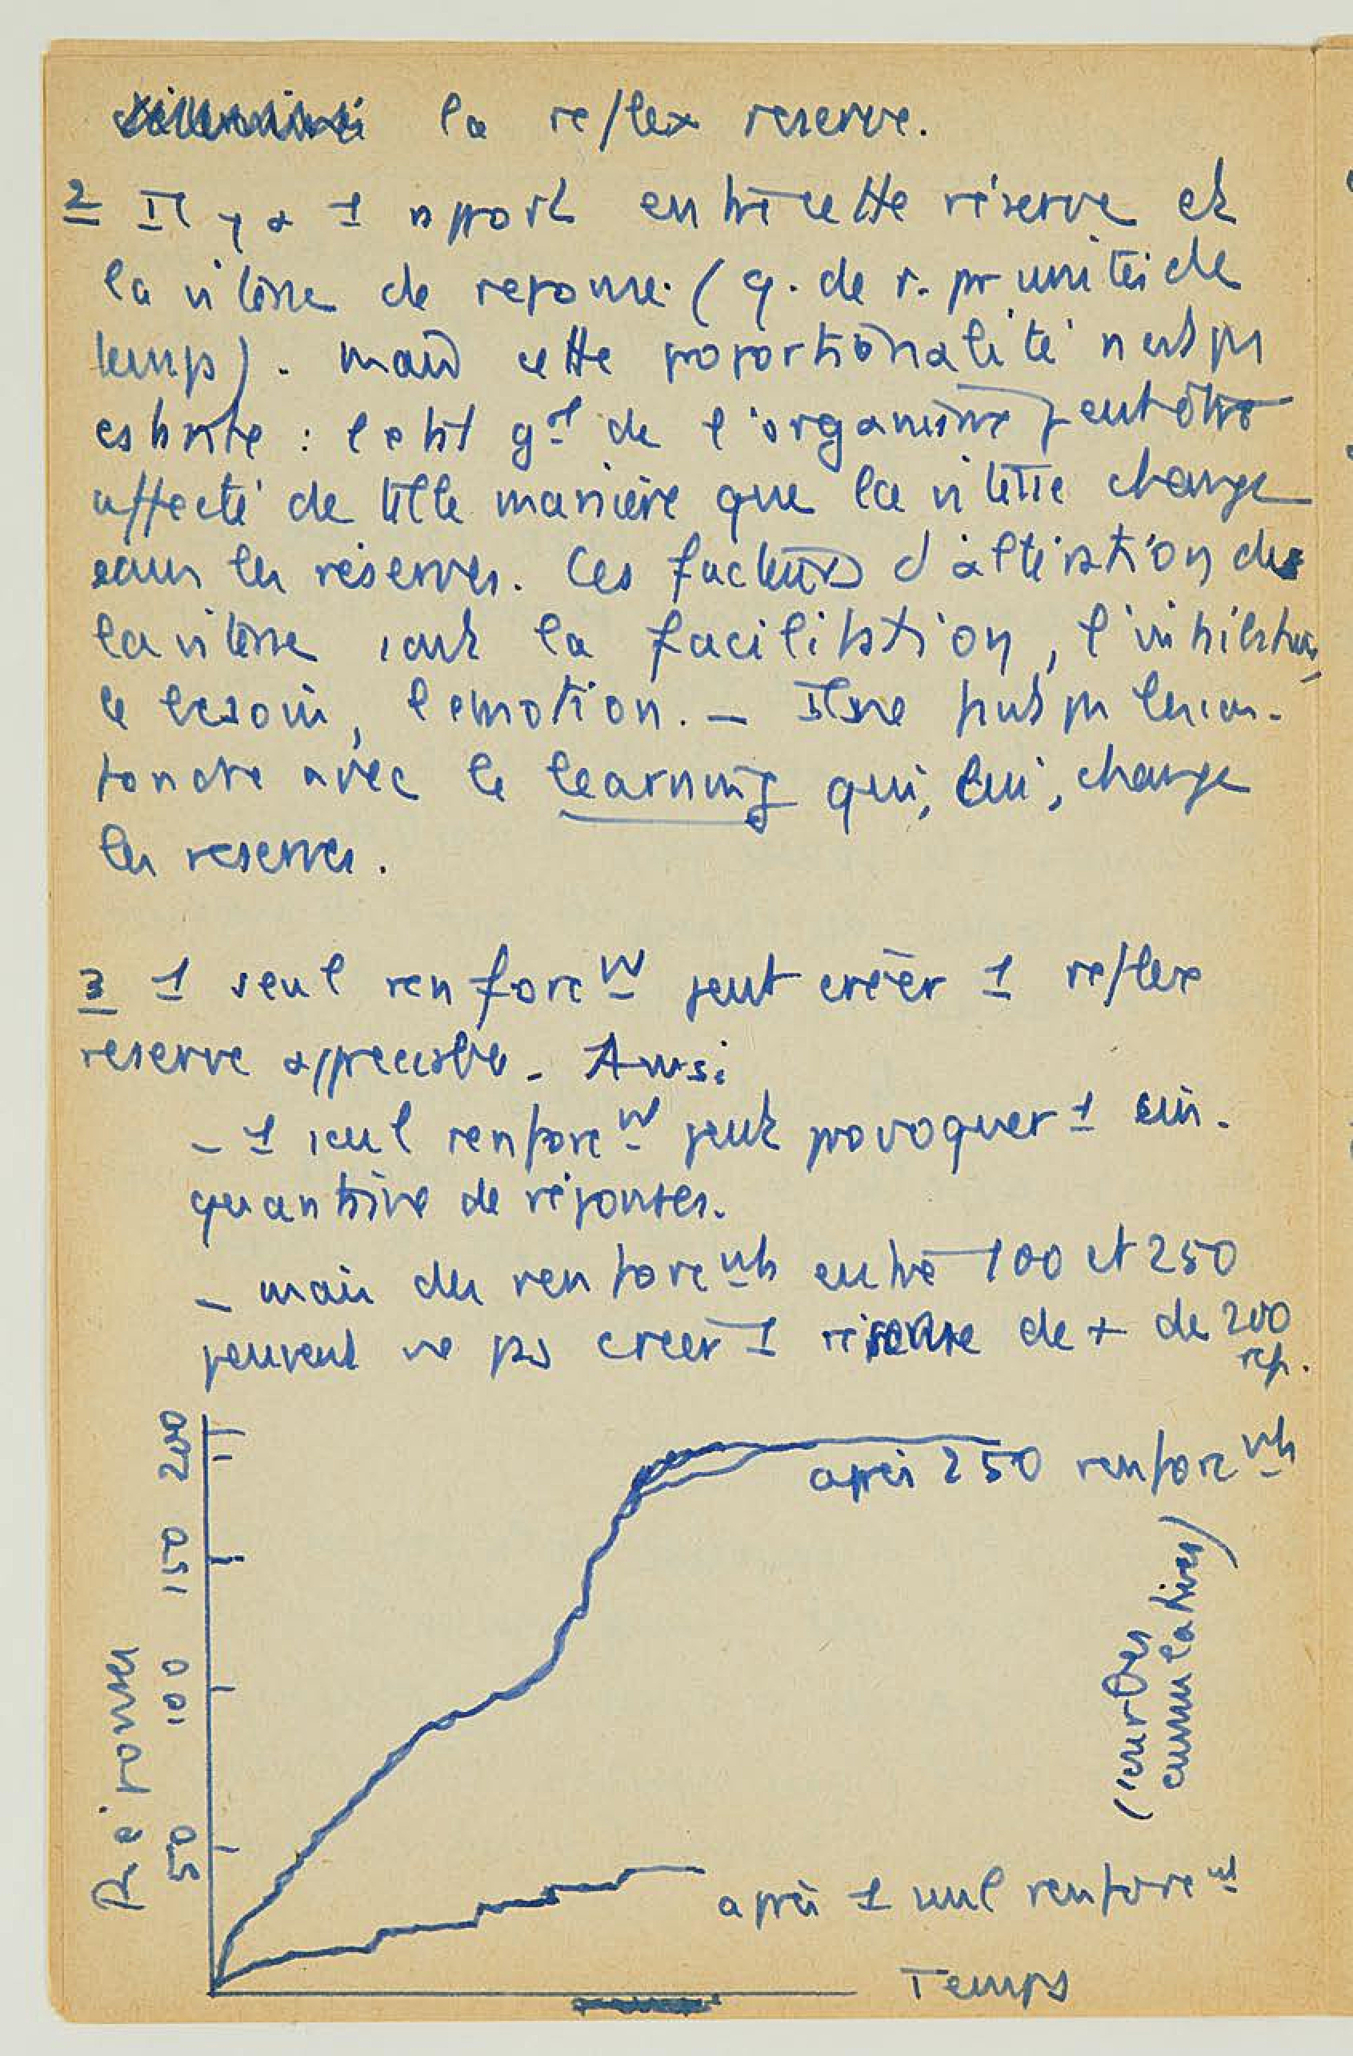 la reflex reserve.
2 Il y a 1 rapport entre cette réserve et
la vitesse de reponse (q. de r. pr unité de
temps). mais cette proportionalité n'est pas
estricte : l'etat gal de l'organisme peut être
affecté de telle manière que la vitesse change
sans les réserves. Ces facteurs d'altération de
la vitesse sont la facilitation, l'inhibition,
le besoin, l'emotion. — Il ne faut pas les con-
fondre avec le learning qui, lui, change
les reserves.
3 1 seul renforcnt peut créer 1 reflex
reserve appreciable. Ainsi
– 1 seul renforcnt peut provoquer 1 cin-
quantaine de réponses.
– mais des renforcnts entre 100 et 250
peuvent ne pas creer 1 réserve de + de 200
rep.
200
150
100
50
Réponses
après 250 renforcnts
(courbes
cumulatives)
après 1 seul renforcnt
Temps